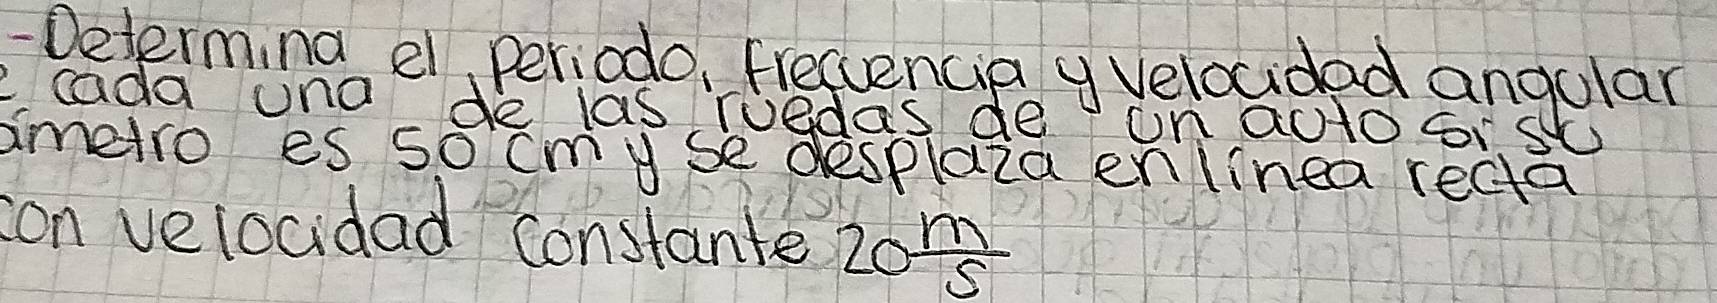 -Determina el periodo, frecuencia y velocidad angular
e cada una de las ruedas de un auto si su
ámetro es 50 cm y se desplaza en línea recta
con velocidad constante 20 m/s